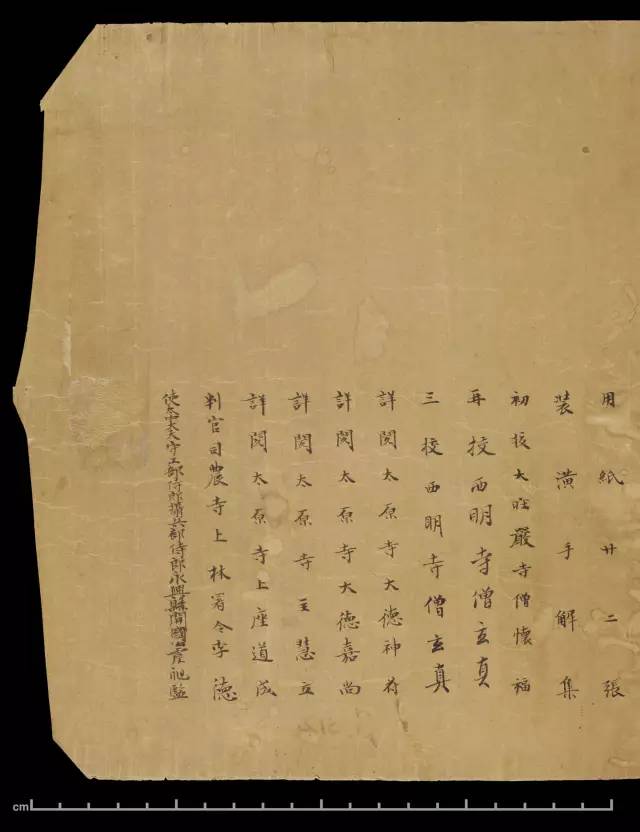 用紙廿二張
裝潢手解集
初挍大莊嚴寺僧懷福
再挍西明寺僧玄真
三挍西明寺僧玄真
詳閱太原寺大德神苻
詳閱太原寺大德嘉尚
詳閱太原寺主慧立
詳閱太原寺上座道成
判官司農寺上林署令李德
使太中大夫守工部侍郎攝兵部侍郎永興縣開國公虞昶監
cm